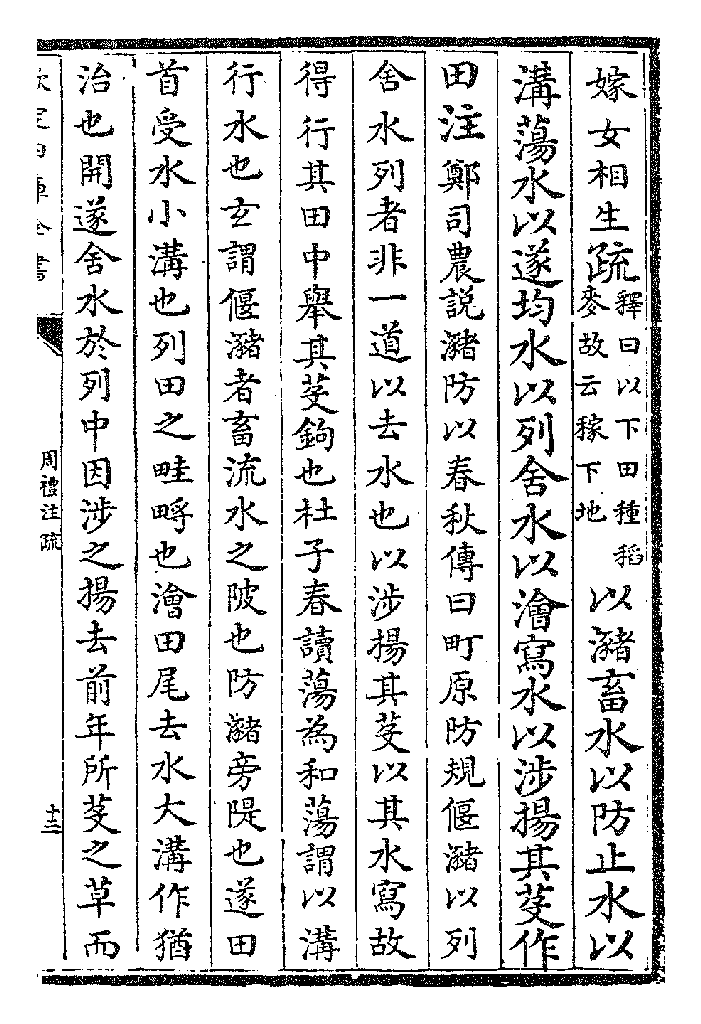 嫁女相生疏釋曰以下田種稻麥故云稼下地以瀦畜水以防止水以
溝蕩水以遂均水以列舍水以澮寫水以涉揚其芟作
田注鄭司農説瀦防以春秋傳曰町原防規偃瀦以列
舍水列者非一道以去水也以涉揚其芟以其水寫故
得行其田中舉其芟鉤也杜子春讀蕩為和蕩謂以溝
行水也玄謂偃瀦者畜流水之陂也防瀦旁隄也遂田
首受水小溝也列田之畦㽟也澮田尾去水大溝作猶
治也開遂舍水於列中因涉之揚去前年所芟之草而
欽定四庫全書
周禮注疏
十三